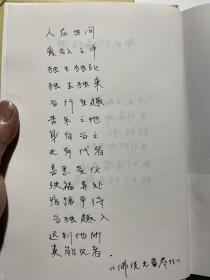 人在世间
爱欲之中
独生独死
独去独来
当行至趣
苦乐之地
身自当之
无有代者
善恶变化
殃福异处
宿豫严待
当独趣入
远到他所
莫能见者.
《佛说无量寿经》